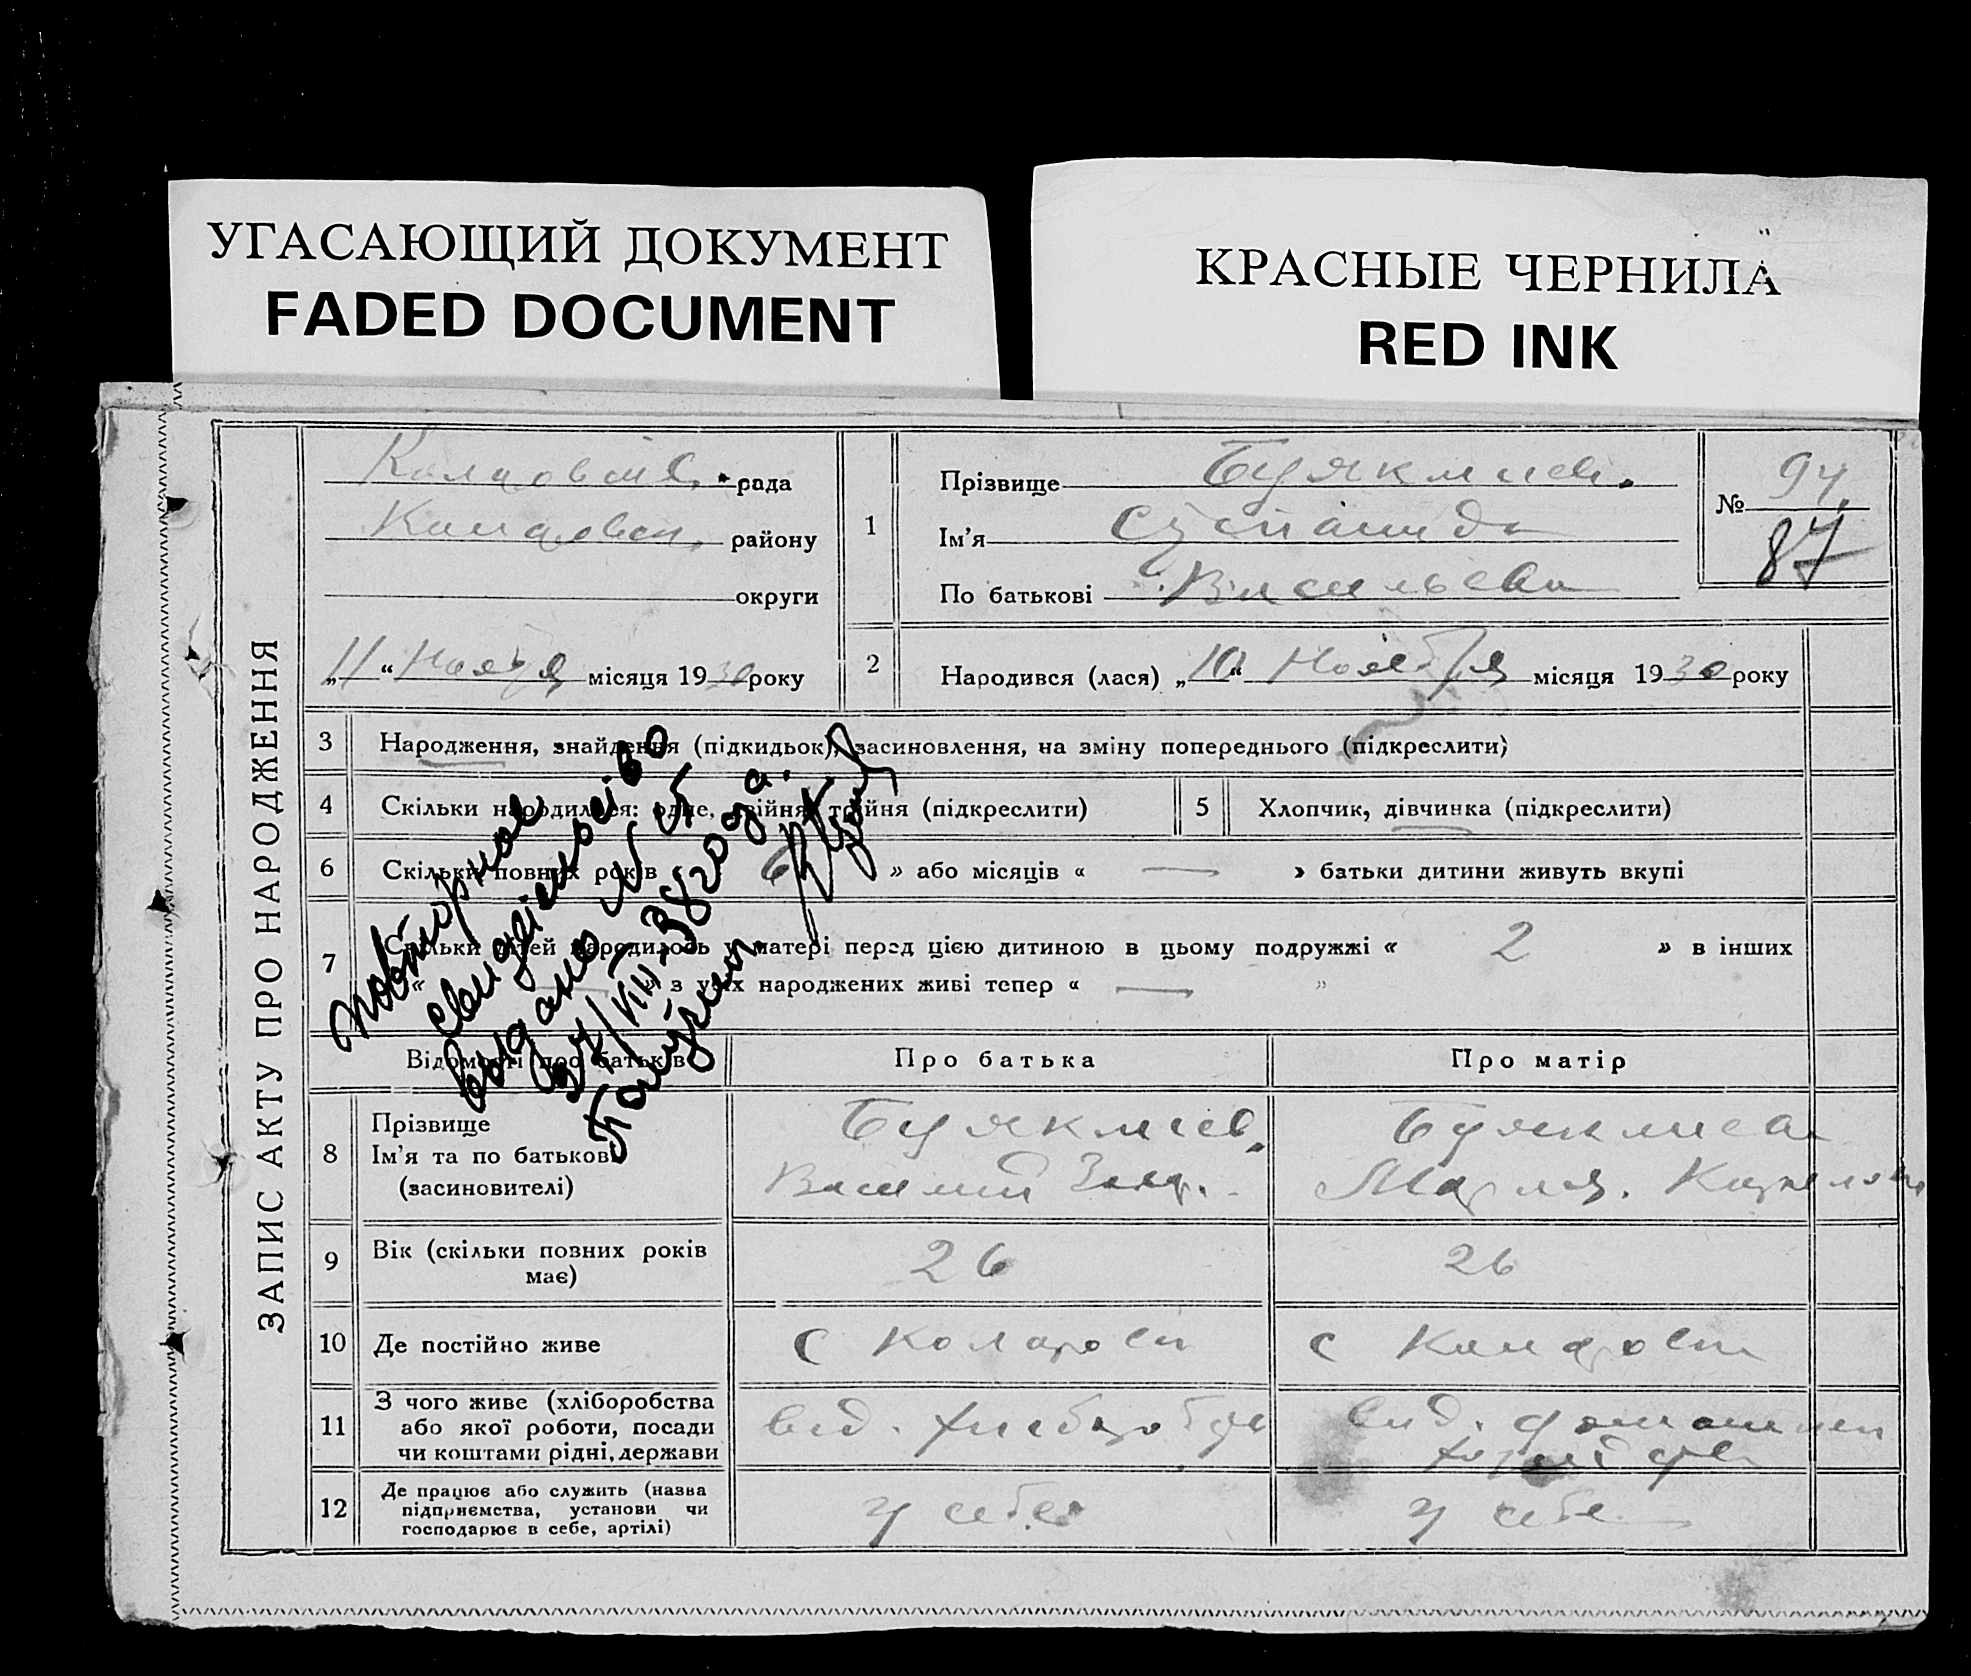 УГАСАЮЩИЙ ДОКУМЕНТ
FADED DOCUMENT
КРАСНЫЕ ЧЕРНИЛА
RED INK
ЗАПИС АКТУ ПРО НАРОДЖЕННЯ
рада
району
округи
„11“ Ноября місяця 1930 року
1
Прізвище
Ім'я
По батькові
№ 94
87
2
Народився (лася) „10“ Ноября місяця 1930 року
3 Народження, знайдення (підкидьок), засиновлення, на зміну попереднього (підкреслити)
4 Скільки народилися: одне, двійня, трійня (підкреслити)
5 Хлопчик, дівчинка (підкреслити)
6 Скільки повних років 6 » або місяців « — » батьки дитини живуть вкупі
7 Скільки дітей народилось у матері перед цією дитиною в цьому подружжі « 2 » в інших
« — » з усіх народжених живі тепер « — »
повторное
свидетельство
выдано № 5
27/VIII-38 года.
Відомості про батьків
Про батька
Про матір
8 Прізвище
Ім'я та по батькові
(засиновителі)
Буяклиев
Василий
Мария
9 Вік (скільки повних років має)
26
26
10 Де постійно живе
с
с
11 З чого живе (хліборобства
або якої роботи, посади
чи коштами рідні, держави
від. хлебороб
від.
12 Де працює або служить (назва
підприємства, установи чи
господарює в себе, артілі)
у себе
у себе